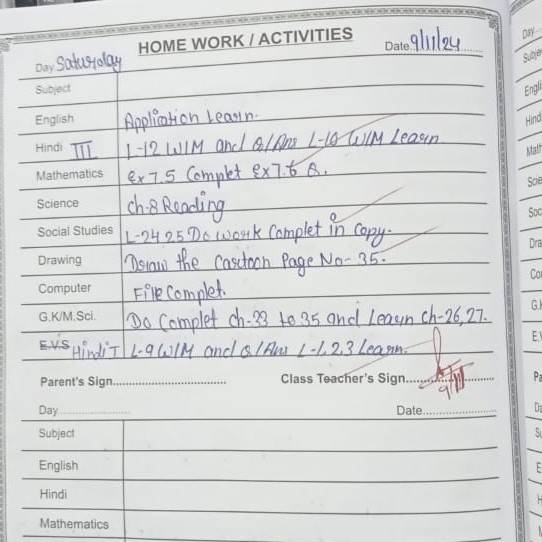 HOME WORK / ACTIVITIES
Day Saturday Date 9/11/24
Subject
English Appliation Learn.
Hindi III L-12 W/M and Q/Ans L-10 W/M Learn
Mathematics Ex 7.5 Complet Ex 7.6 Q.
Science Ch-8 Reading
Social Studies L-24 25 Do work Complet in Copy.
Drawing Draw the Cartoon Page No- 35.
Computer File Complet.
G.K/M.Sci. Do Complet ch-33 to 35 and Learn ch-26,27.
E.V.S Hindi I L-9 W/M and Q/Ans L-1,2,3 Learn.
Parent's Sign............................ Class Teacher's Sign............................
9/11
Day .................... Date....................
Subject
English
Hindi
Mathematics